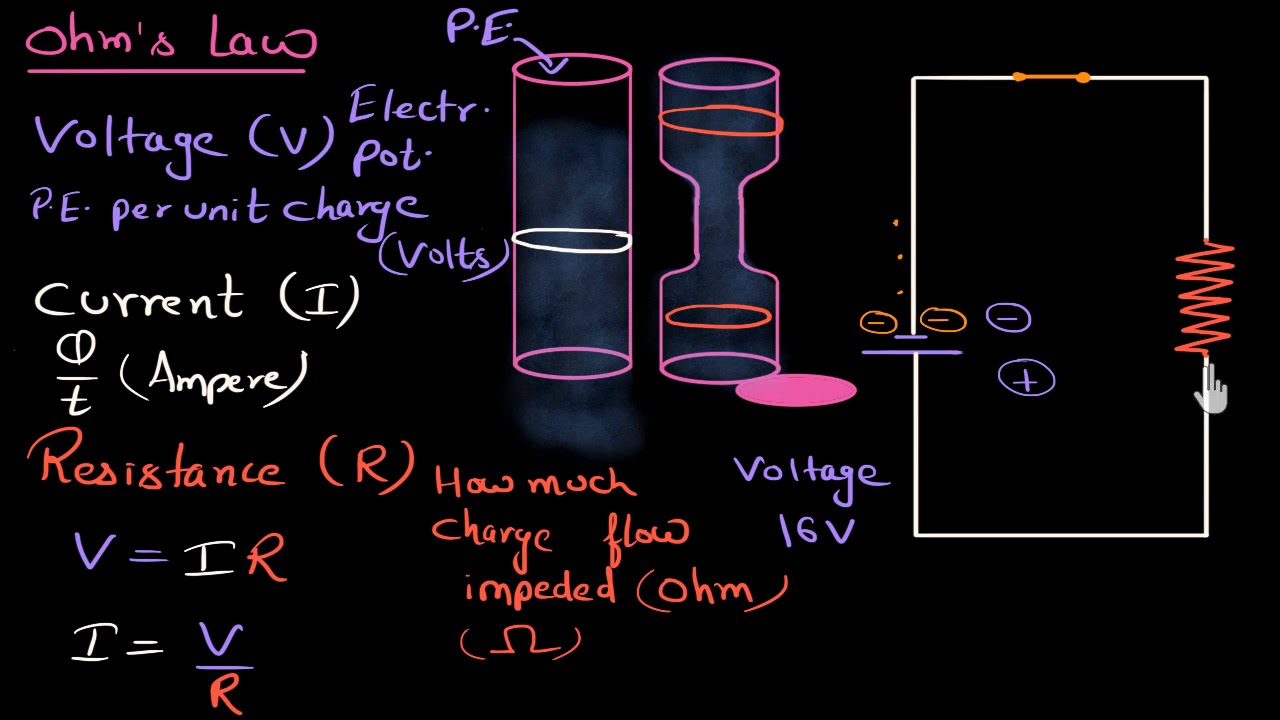 Ohm's Law
P.E.
Voltage (V) Electr.
Pot.
P.E. per unit charge
(Volts)
Current (I)
Q
t
(Ampere)
Resistance (R) How much
charge flow
impeded (Ohm)
(Ω)
V = I R
I = V
R
Voltage
16V
− − −
+